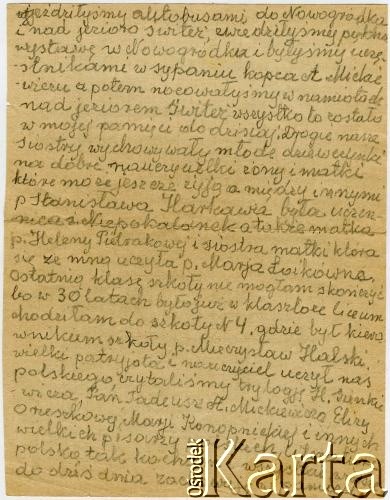 jeździłyśmy autobusami do Nowogródka
i nad jezioro Świteź, zwiedziłyśmy piękną
wystawę w Nowogródku i byłyśmy ucze
stnikami w sypaniu kopca A. Mickie
wicza a potem nocowałyśmy w namiotach
nad jeziorem Świteź wszystko to zostało
w mojej pamięci do dzisiaj. Drogie nasze
siostry wychowywały młode dziewczynki
na dobre nauczycielki żony i matki
które może jeszcze żyją a między innymi
p. Stanisława Harkawa była uczen
nica z Niepokalanek a także matka
p. Heleny Pietrakowej i siostra matki która
się ze mną uczyła p. Marja Łoikówna.
Ostatnią klasę szkoły nie mogłam skończyć
bo w 30 latach było już w klasztorze liceum
chodziłam do szkoły N 4, gdzie był kiero
wnikiem szkoły p. Mieczysław Halski
wielki patryjota i nauczyciel uczył nas
polskiego czytaliśmy trylogję H. Sienki
wicza, Pan Tadeusz A. Mickiewicza Elizy
Orzeszkowej Marji Konopnickiej i innych
wielkich pisarzy
polskę tak koch
do dziś dnia
Ośrodek
Karta